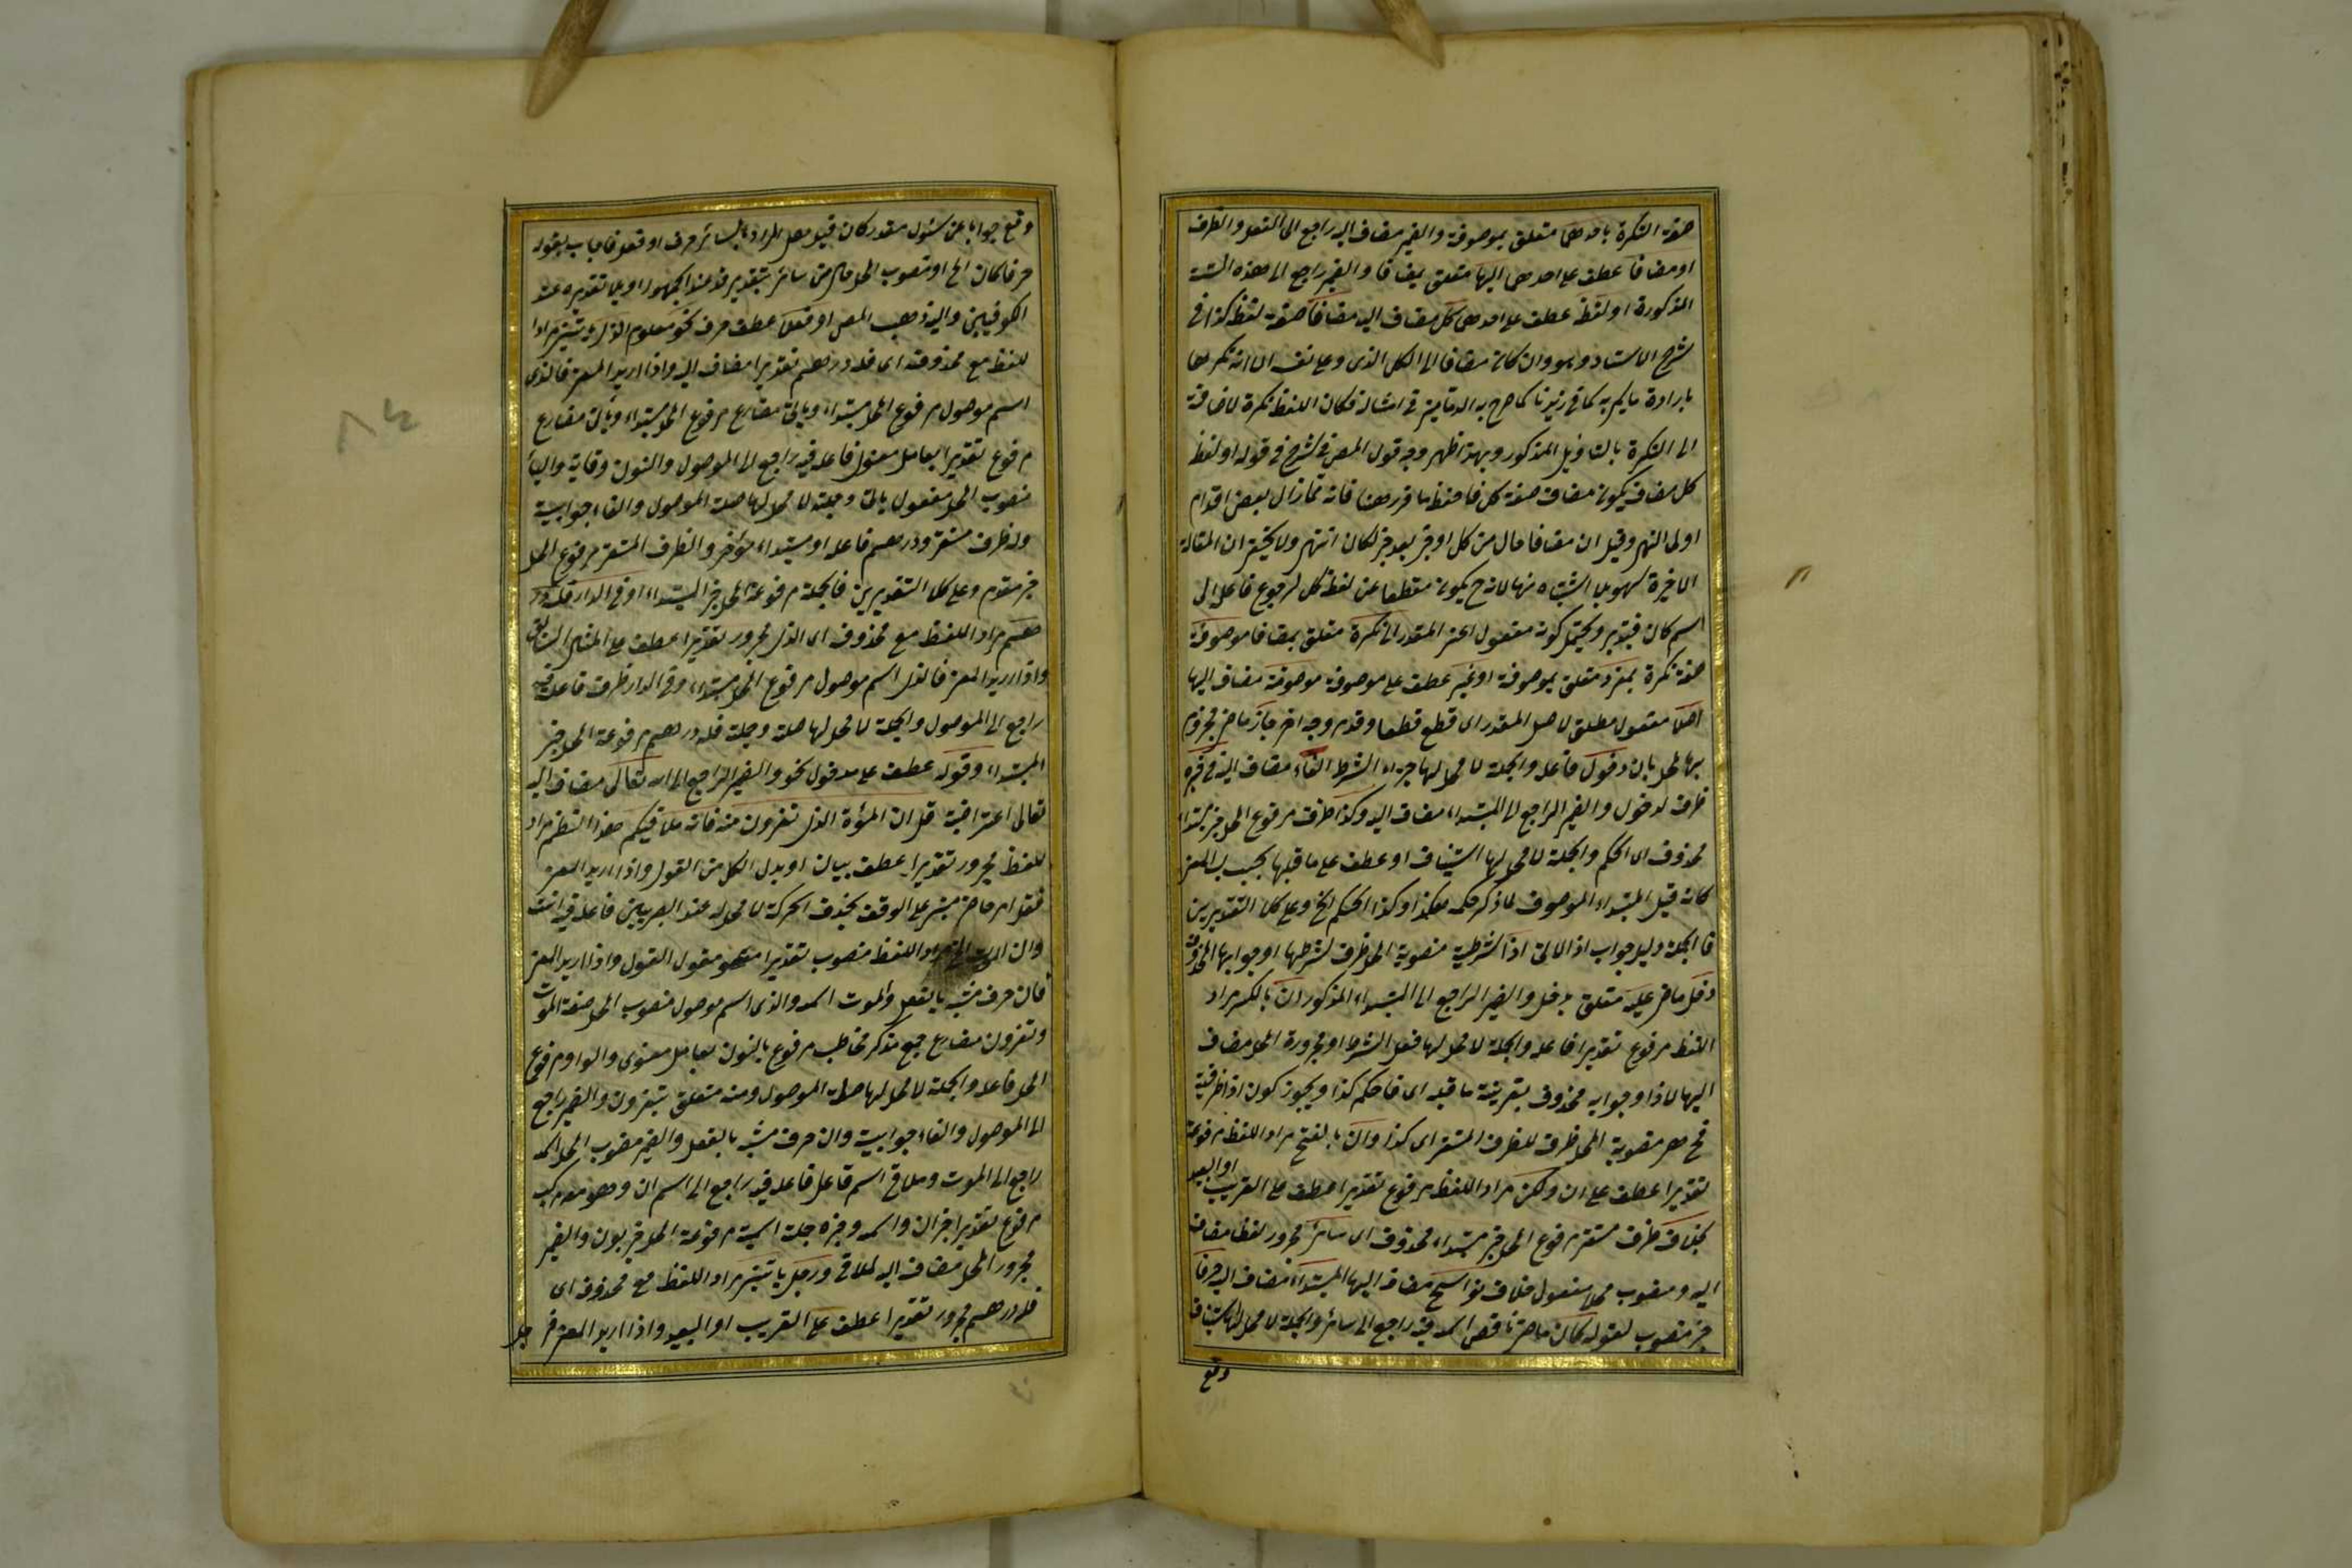 صفة النكرة باحدهما متعلق بموصوفة والضمير مضاف اليه راجع الى الفعل والظرف
او مضافا عطف على احدهما اليها متعلق بمضافا والضمير راجع الى هذه الستة
المذكورة او لفظ عطف على احدهما كل مضاف اليه مضافا صفة لفظ كذا في
شرح الاستاد وهو وان كان مضافا الى الكل الذى
بارادة ما يكم به كما في زيدنا كما صرح به الدمامينى في امثاله فكان اللفظ نكرة لاضافته
الى النكرة بالتاويل المذكور وبهذا ظهر وجه قول المص في الشرح في قوله او لفظ
كل مضاف يكون مضاف صفة كل فاحفظ ما قررنا فانه مما زال بعض اقدام
اولى النهى وقيل ان مضافا حال من كل او خبر بعد خبر لكان انتهى ولا يخفى ان المقالة
الاخيرة سهو بلا اشتباه منها لانه ح يكون منقطعا عن لفظ كل لرجوع فاعله الى
اسم كان فتدبر ويحتمل كونه مفعول اعنى المقدر الى نكرة متعلق بمضافا موصوفة
صفة نكرة بمفرد متعلق بموصوفة او غير عطف على موصوفة موصوفة مضاف اليها
اصلا مفعول مطلق لاصل المقدر اى قطع قطعا وقدم وجه اخر جاز ماض مجزوم
بها محل بان دخول فاعله والجملة لا محل لها جزاء الشرط الفاء مضاف اليه في خبره
ظرف لدخول والضمير الراجع الى المبتداء مضاف اليه وكذا ظرف مرفوع المحل خبر مبتداء
محذوف اى الحكم والجملة لا محل لها استيناف او عطف على ما قبلها بحسب المعنى
كانه قيل المبتداء الموصوف لما ذكر حكمه هكذا وكذا الحكم الخ وعلى كلا التقديرين
فالجملة دليل جواب اذا الاتى اذا شرطية منصوبة المحل ظرف لشرطها او جوابها المحذوف
دخل ماض عليه متعلق بدخل والضمير الراجع الى المبتداء المذكور ان بالكسر مراد
اللفظ مرفوع تقديرا فاعله والجملة لا محل لها فعل الشرط او مجرورة المحل مضاف
اليها لاذا وجوابه محذوف بقرينة ما قبله اى فالحكم كذا ويجوز كون اذا ظرفية
فح هى منصوبة المحل ظرف للظرف المستقر اى كذا وان بالفتح مراد اللفظ مرفوعة
تقديرا عطف على ان ولكن مراد اللفظ مرفوع تقديرا عطف على القريب او البعيد
بخلاف ظرف مستقر مرفوع المحل خبر مبتداء محذوف اى سائر مجرور لفظا مضاف
اليه ومنصوب محلا مفعول خلاف نواسخ مضاف اليها المبتداء مضاف اليه حرفا
خبر منصوب لقوله كان ماض ناقص اسمه فيه راجع الى سائر والجملة لا محل لها استيناف
وقع
وقع جوابا عن سئول مقدر كان قيل هل المراد بالسائر حرف او فعل فاجاب بقوله
حرفا كان الخ او منصوب المحل حال من سائر بتقدير قد عند الجمهور او بلا تقديره عند
الكوفيين واليه ذهب المص او فعلا عطف حرف نحو معلوم الذى ياتينى مراد
للفظ مع محذوفه اى فله درهم تقديرا مضاف اليه واذا اريد المعنى فالذى
اسم موصول مرفوع المحل مبتداء وياتى مضارع
مرفوع تقديرا بعامل معنوى فاعله فيه راجع الى الموصول والنون وقاية والياء
منصوب المحل مفعول ياتى وجملته لا محل لها صلة الموصول والفاء جوابية
وله ظرف مستقر ودرهم فاعله او مبتداء مؤخر والظرف المستقر مرفوع المحل
خبر مقدم وعلى كلا التقديرين فالجملة مرفوعة المحل خبر المبتداء او في الدار فله در
هم مراد اللفظ مع محذوف اى الذى مجرور تقديرا عطف على المثال السابق
واذا اريد المعنى فالذى اسم موصول مرفوع المحل مبتداء وفي الدار ظرف فاعله فيه
راجع الى الموصول والجملة لا محل لها صلة وجملة فله درهم مرفوعة المحل خبر
المبتداء وقوله عطف على مدخول نحو والضمير الراجع الى الله تعالى مضاف اليه
تعالى اعتراضية قل ان الموت الذى تفرون منه فانه ملاقيكم هذا النظم مراد
للفظ مجرور تقديرا عطف بيان او بدل الكل من القول واذا اريد المعنى
فقل امر حاضر مبنى على الوقف بحذف الحركة لا محل له عند البصريين فاعله فيه انت
وان الموت الخ مراد اللفظ منصوب تقديرا مقول القول واذا اريد المعنى
فان حرف مشبه بالفعل والموت اسمه والذى اسم موصول منصوب المحل صفة الموت
وتفرون مضارع جمع مذكر مخاطب مرفوع بالنون بعامل معنوى والواو مرفوع
المحل فاعله والجملة لا محل لها صلة الموصول ومنه متعلق بتفرون والضمير راجع
الى الموصول والفاء جوابية وان حرف مشبه بالفعل والضمير منصوب المحل اسمه
راجع الى الموت وملاقى اسم فاعل فاعله فيه راجع الى اسم ان وهو مع مركب
مرفوع تقديرا خبر ان واسمه وخبره جملة اسمية مرفوعة المحل خبر والضمير
مجرور المحل مضاف اليه لملاقى ورجل ياتينى مراد اللفظ مع محذوفه اى
فله درهم مجرور تقديرا عطف على القريب او البعيد واذا اريد المعنى فرجل